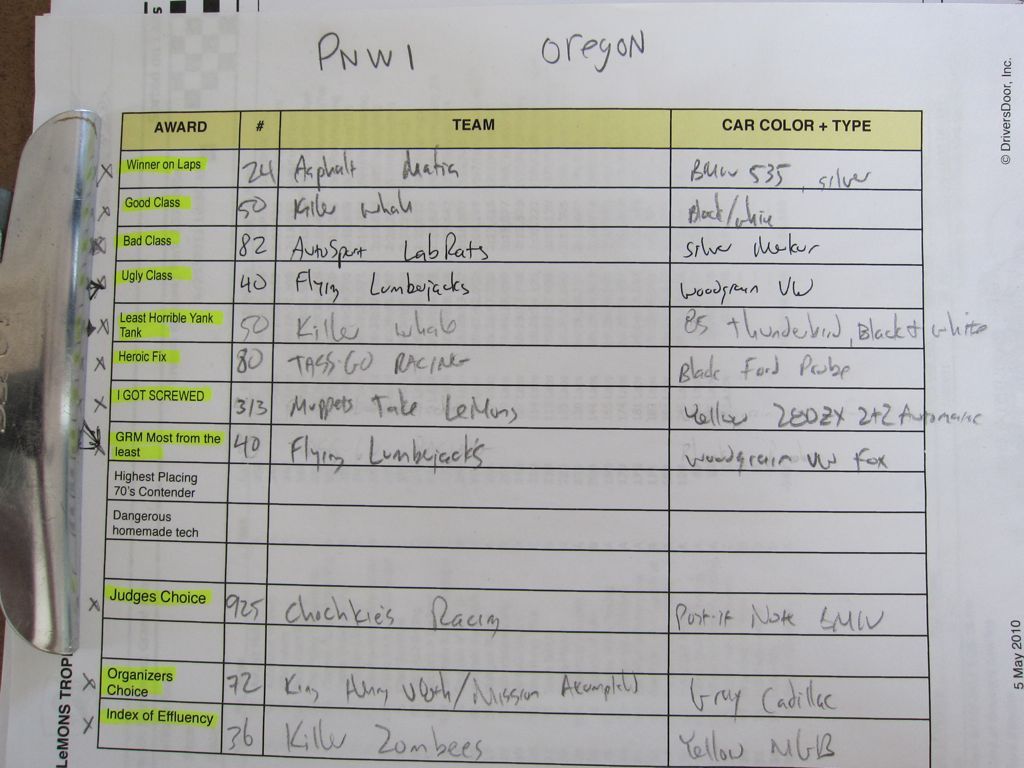 PNW1 Oregon
AWARD # TEAM CAR COLOR + TYPE
Winner on Laps 24 Asphalt Mafia BMW 535, silver
Good Class 50 Killer whale Black/white
Bad Class 82 AutoSport LabRats silver Merkur
Ugly Class 40 Flying Lumberjacks woodgrain VW
Least Horrible Yank
Tank 50 Killer whale 85 thunderbird, Black + white
Heroic Fix 80 TASS-GO RACING Black Ford Probe
I GOT SCREWED 313 Muppets Take LeMons Yellow 280ZX 2+2 Automatic
GRM Most from the
least 40 Flying Lumberjacks woodgrain VW Fox
Highest Placing
70's Contender
Dangerous
homemade tech
Judges Choice 925 Chochkie's Racing Post-it Note BMW
Organizers
Choice 72 King Henry /Mission Gray Cadillac
Index of Effluency 36 Killer Zombees Yellow MGB
© DriversDoor, Inc.
5 May 2010
LeMONS